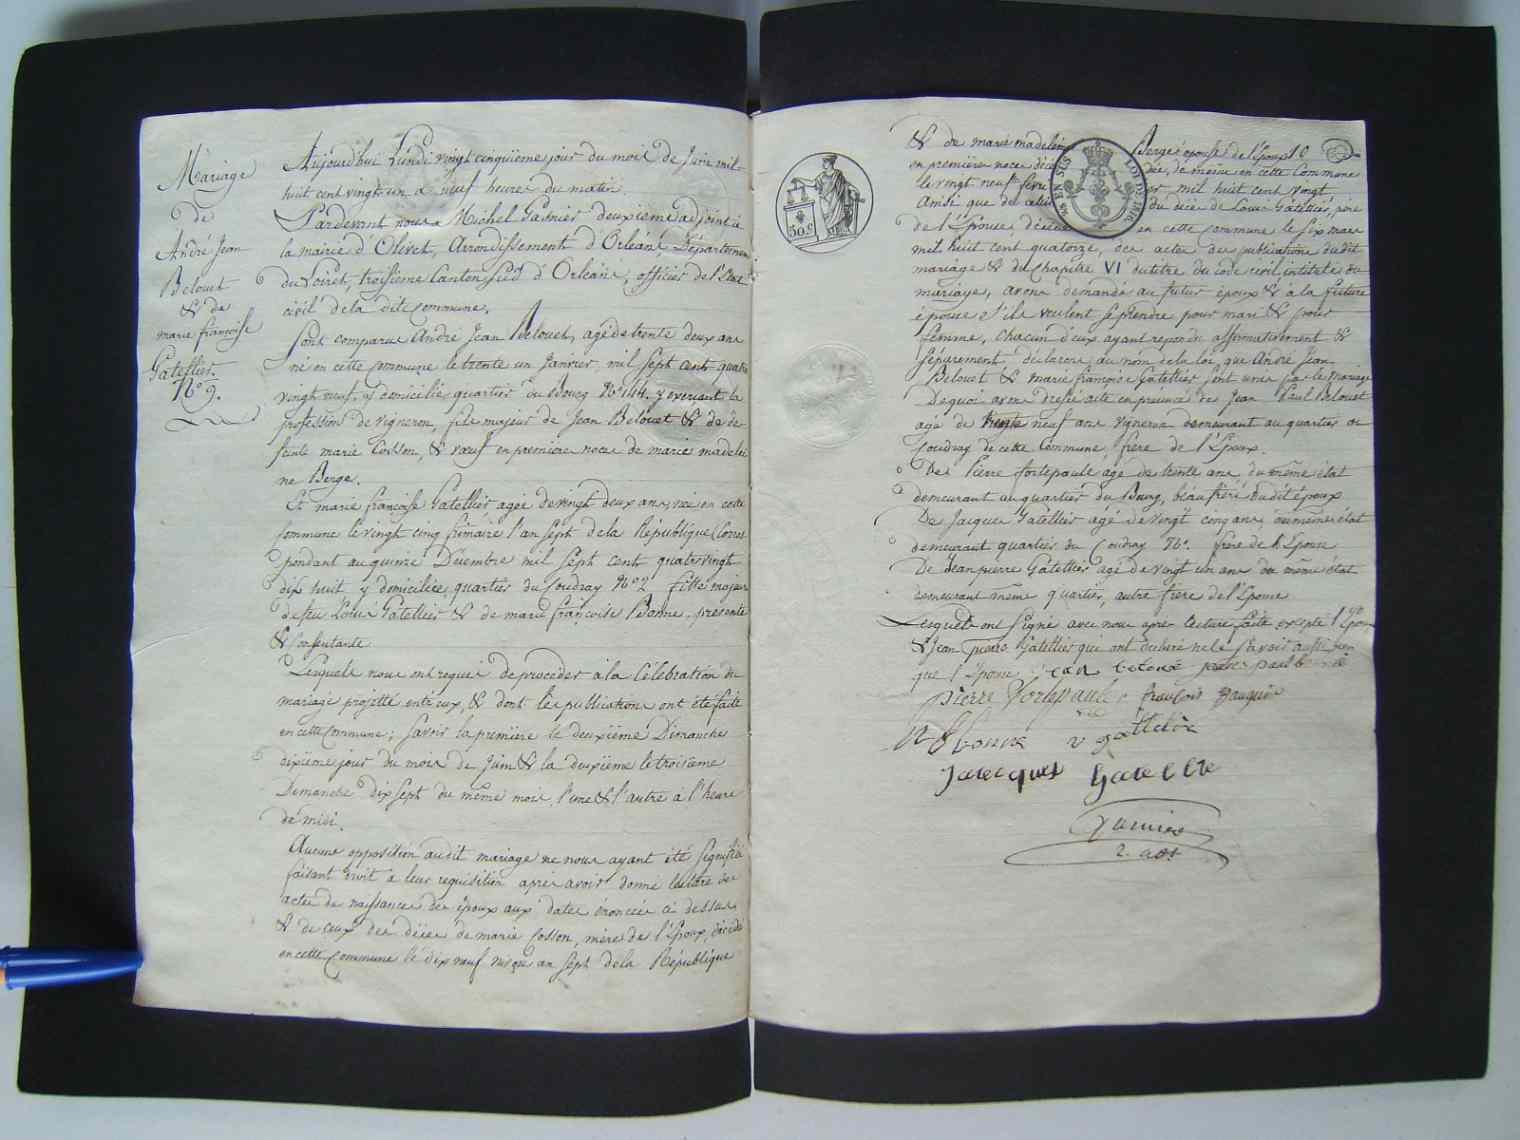 Mariage
de
André Jean
Belouet
& de
marie françoise
Gatellier.
N° 9.
Aujourd'hui Lundi vingt cinquième jour du mois de Juin mil
huit cent vingt un à neuf heures du matin
Pardevant nous Michel Garnier deuxième adjoint à
la mairie d'Olivet, Arrondissement d'Orléans Département
du Loiret, troisième Canton sud d'Orléans, officier de l'Etat
civil de la dite Commune.
Sont comparus André Jean Belouet, agé de trente deux ans
né en cette Commune le trente un Janvier mil sept cent quatre
vingt neuf, y domicilié quartier du Bourg N° 144. y exerçant la
profession de vigneron, fils majeur de Jean Belouet & de dé-
funte marie Cosson, & veuf en première noce de marie madelei
ne Berge.
Et marie françoise Gatellier agée de vingt deux ans, née en cette
Commune le vingt cinq frimaire l'an sept de la République (Corres
pondant au quinze Décembre mil sept cent quatrevingt
dix huit y domiciliée, quartier du Coudray N° 2 fille majeure
de feu Louis Gatellier & de marie françoise Bonne. présente
& Consentante
Lesquels nous ont requis de procéder à la Célébration du
mariage projetté entr'eux, & dont les publications ont été faite
en cette Commune; Savoir la première le deuxième Dimanche
dixième jour du mois de Juin & la deuxième le troisième
Dimanche dix sept du même mois, l'une & l'autre à l'heure
de midi.
Aucune opposition audit mariage ne nous ayant été signifiée
faisant droit à leur requisition après avoir donné lecture des
actes de naissance des époux aux dates énoncées ci dessus
& de ceux des décès de marie Cosson, mère de l'Epoux, décédée
en cette Commune le dix neuf an sept de la République
& de marie madelein Berge épouse de l'époux 10
en première noce décé dée, de même en cette Commune
le vingt neuf févri er mil huit cent vingt
Ainsi que de celui du décès de Louis Gatellier, père
de l'Epouse, décédé en cette commune le six mars
mil huit cent quatorze, des actes des publications dudit
mariage & du Chapitre VI du titre du code civil intitulé du
mariage, avons demandé au futur époux & à la future
épouse s'ils veulent se prendre pour mari & pour
femme, chacun d'eux ayant répondu affirmativement &
séparément, déclarons au nom de la loi, que André Jean
Belouet & marie françoise Gatellier sont unis par le Mariage
De quoi avons dressé acte en présence des Jean Paul Belouet
agé de neuf ans vigneron demeurant au quartier du
Coudray de cette Commune, frère de l'Epoux.
De Pierre fortepaule agé de trente ans, du même état
demeurant au quartier du Bourg, beau frère dudit époux
De Jacques Gatellier agé de vingt cinq ans du même état
demeurant quartier du Coudray N°. frère de l'Epouse
De Jean pierre Gatellier agé de vingt un ans du même état
demeurant même quartier, autre frère de l'Epouse
Lesquels ont signé avec nous après lecture faite excepté l'Epoux
& Jean Pierre Gatellier qui ont déclaré ne le savoir aussi bien
que l'Epouse
pierre fortepaule françois
Jacques Gatellie
Garnier
2. adt
50 C
EN SUS
LOI DE 1816